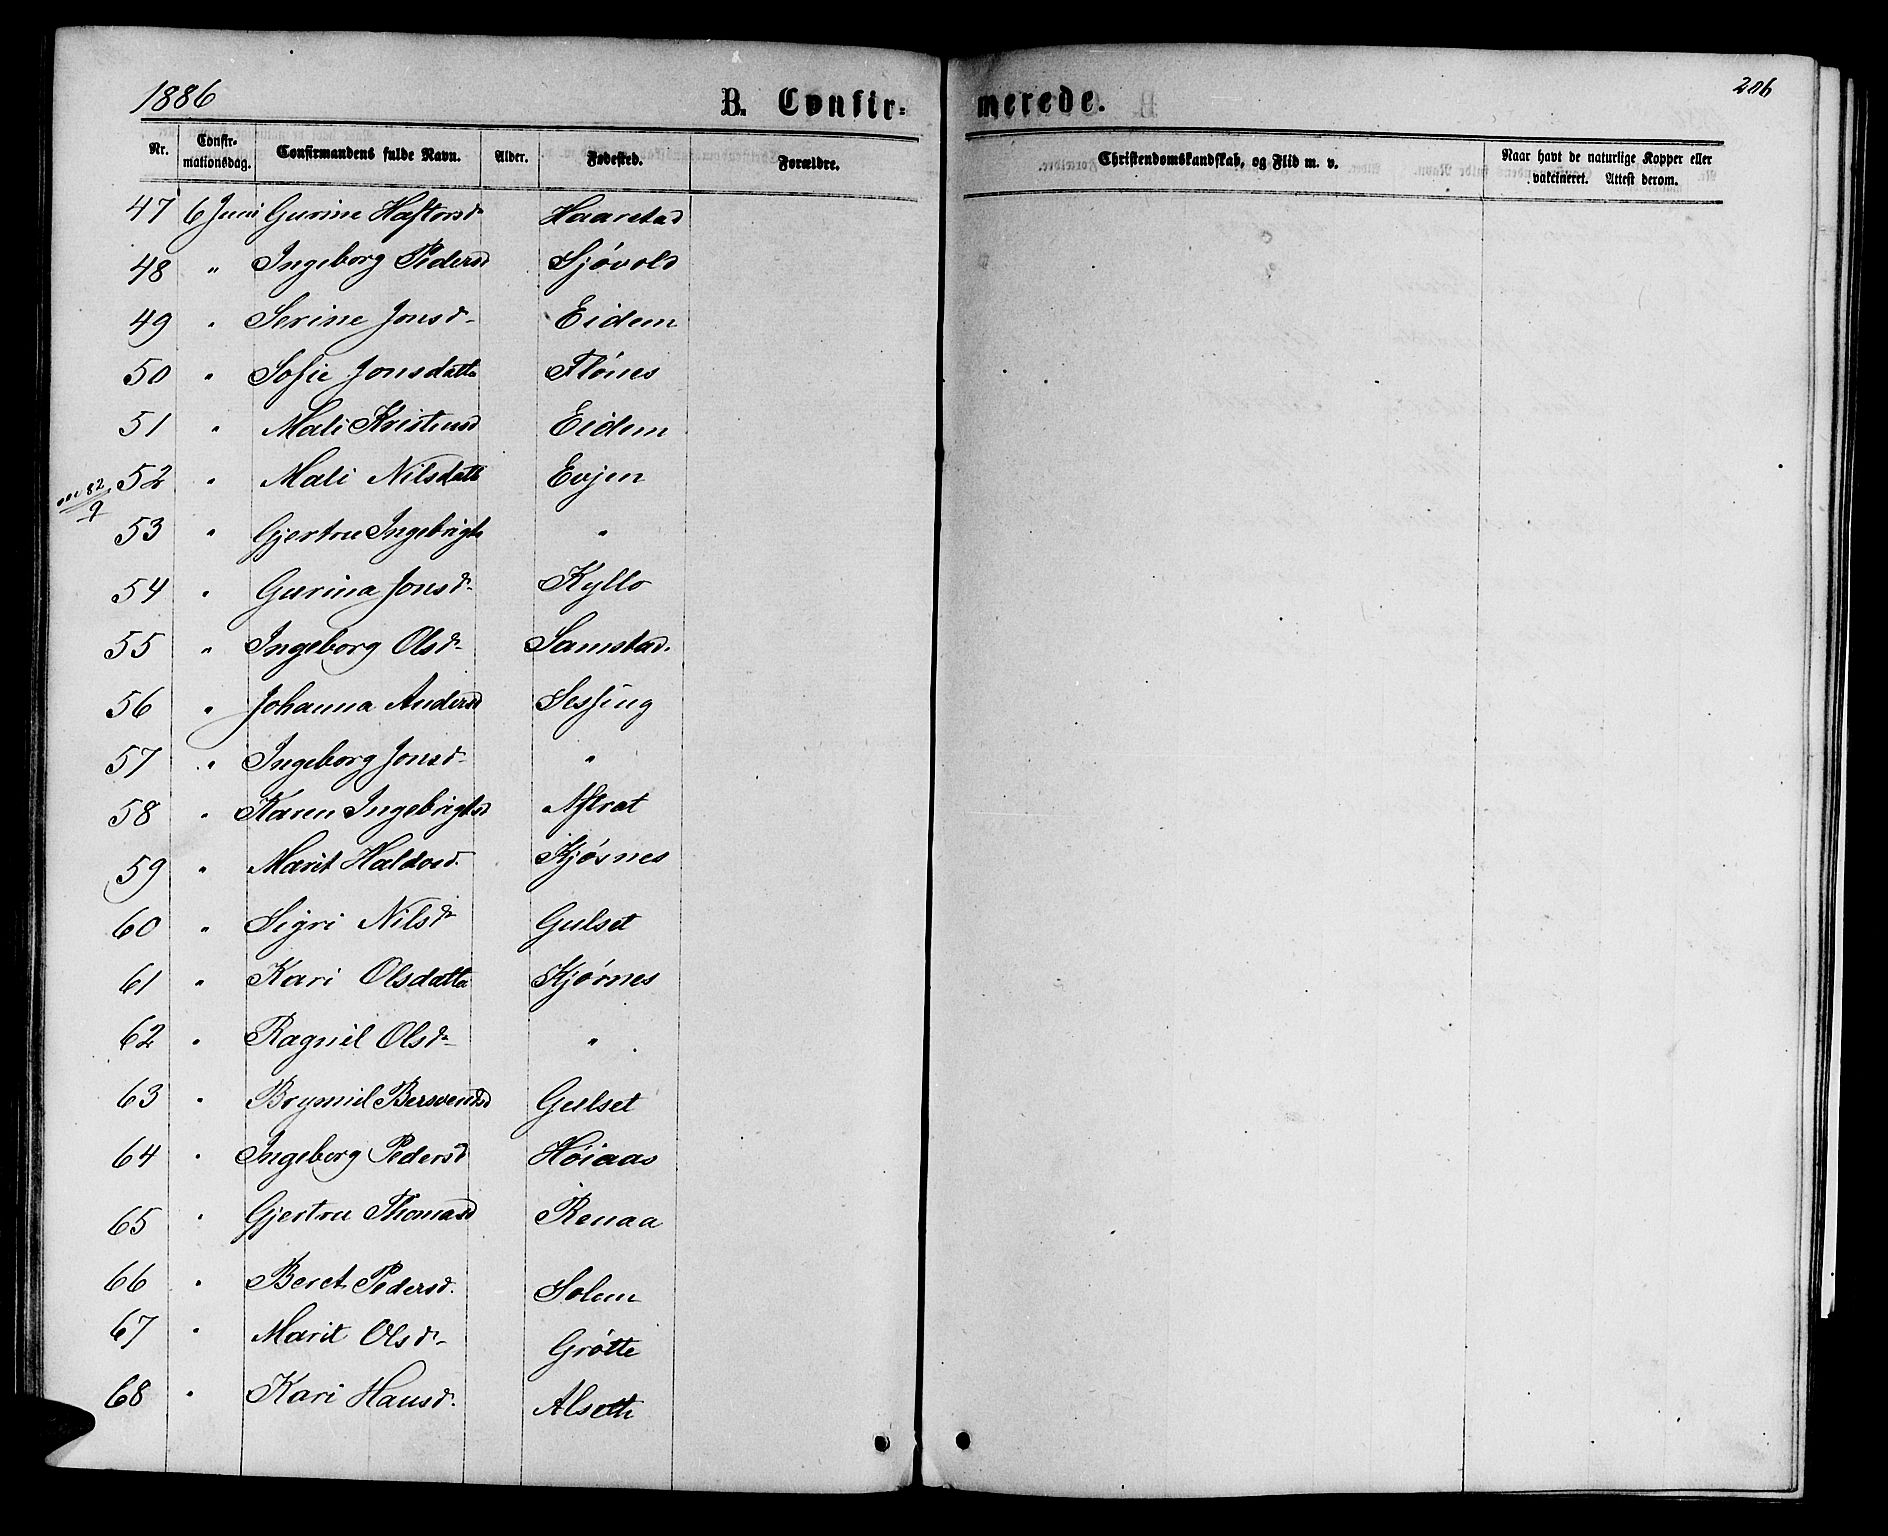 1886
B. Confirmerede.
206
Nr. Confirmationsdag. Confirmandens fulde Navn. Alder. Fødested. Forældre. Christendomskundskab, og Flid m. v. Naar havt de naturlige Kopper eller vakcineret. Attest derom.
47 6 Juni Gurine Haftorsd Haarstad
48 " Ingeborg Pedersd Sjøvold
49 " Serine Jonsd. Eidem
50 " Sofie Jonsdatte Flønes
51 " Mali Kristensd Eidem
52 " Mali Nilsdatt Evjen
53 " Gjertru Ingebrigts "
54 " Gurina Jonsd. Kyllo
55 " Ingeborg Olsd. Samstad.
56 " Johanna Andersd Sessing
57 " Ingeborg Jonsd. "
58 " Karen Ingebrigtsd Aftret
59 " Marit Haldosd. Kjøsnes
60 " Sigri Nilsd Gulset
61 " Kari Olsdatte Kjørnes
62 " Ragnil Olsd. "
63 " Brynnil Bersvendsd Gulset
64 " Ingeborg Pedersd Høiaas
65 " Gjertru Thomasd Renaa
66 " Beret Pedersd. Solem
67 " Marit Olsd. Grøtte
68 " Kari Hansd. Alseth